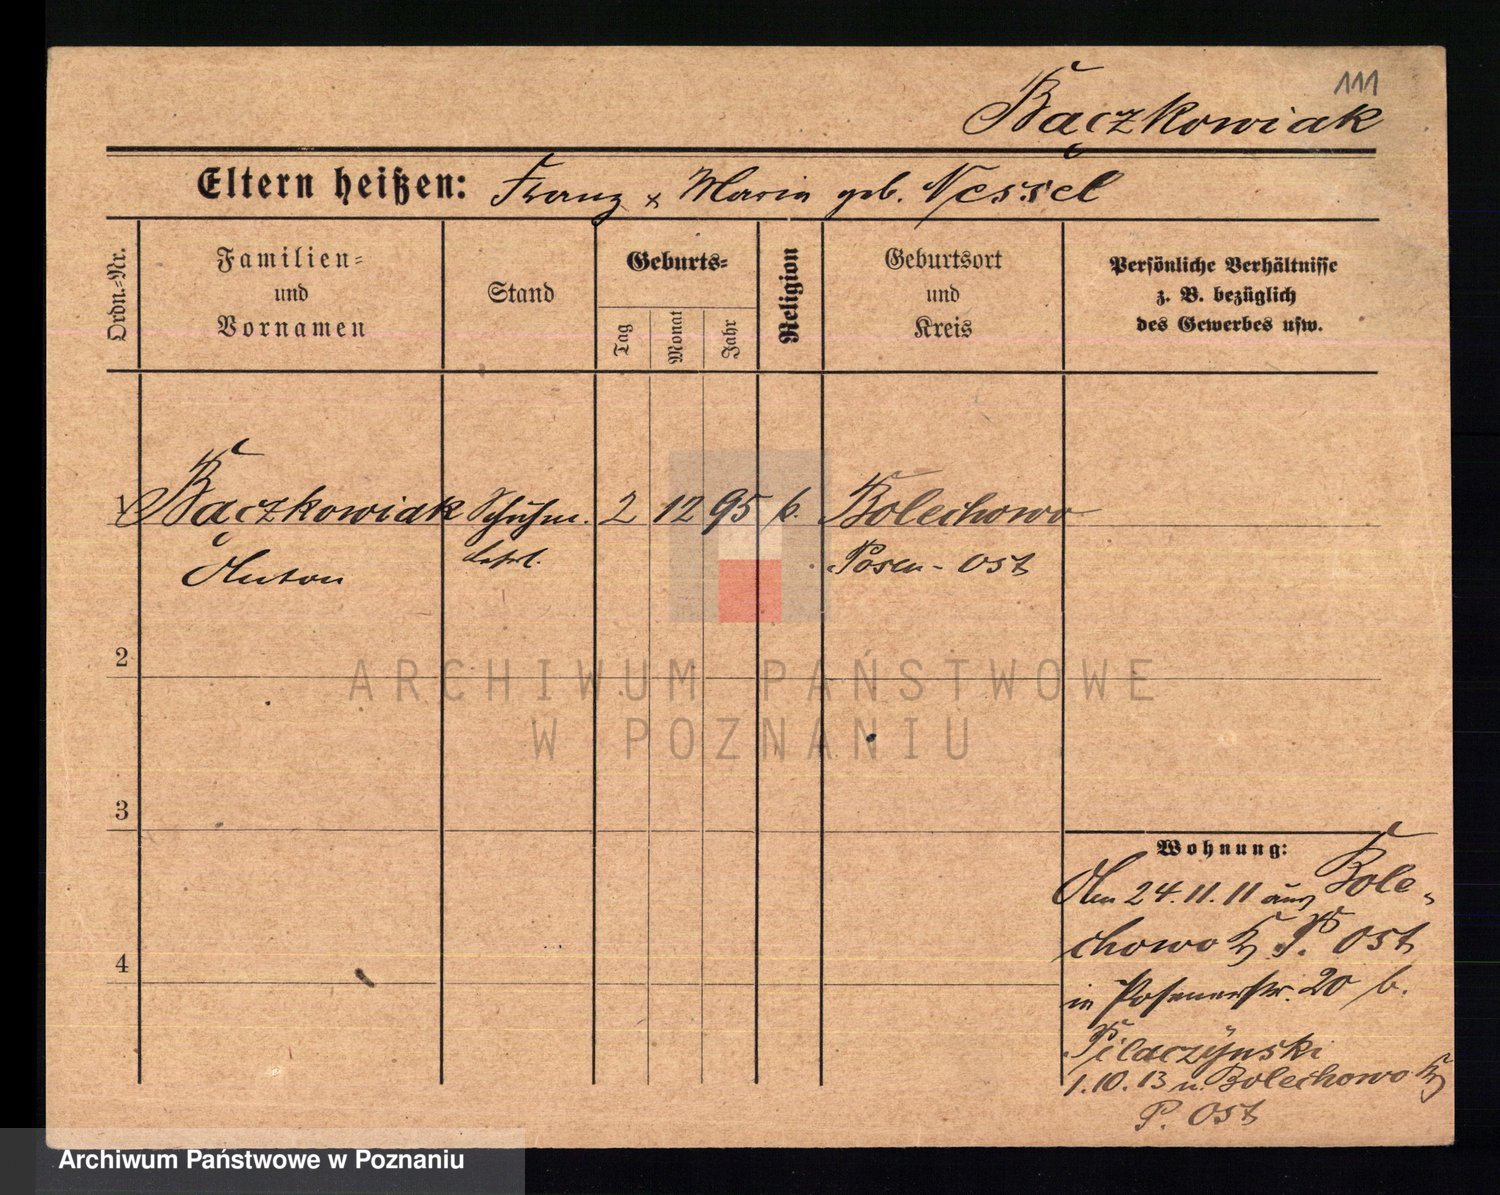 111
Bączkowiak
Eltern heißen: Franz x Maria geb. Nessel
Ordn.-Nr.
Familien-
und
Vornamen
Stand
Geburts-
Tag
Monat
Jahr
Religion
Geburtsort
und
Kreis
Persönliche Verhältnisse
z. B. bezüglich
des Gewerbes usw.
1 Bączkowiak Schuhm. 2 12 95 k. Bolechowo
Anton Lehrl. Posen-Ost
2
3
4
Wohnung:
Am 24.11.11 aus Bole-
chowo Kr P. Ost
in Posenerstr. 20 b.
Pilaczynski
1.10.13 n. Bolechowo Kr
P. Ost
ARCHIWUM PAŃSTWOWE
W POZNANIU
Archiwum Państwowe w Poznaniu